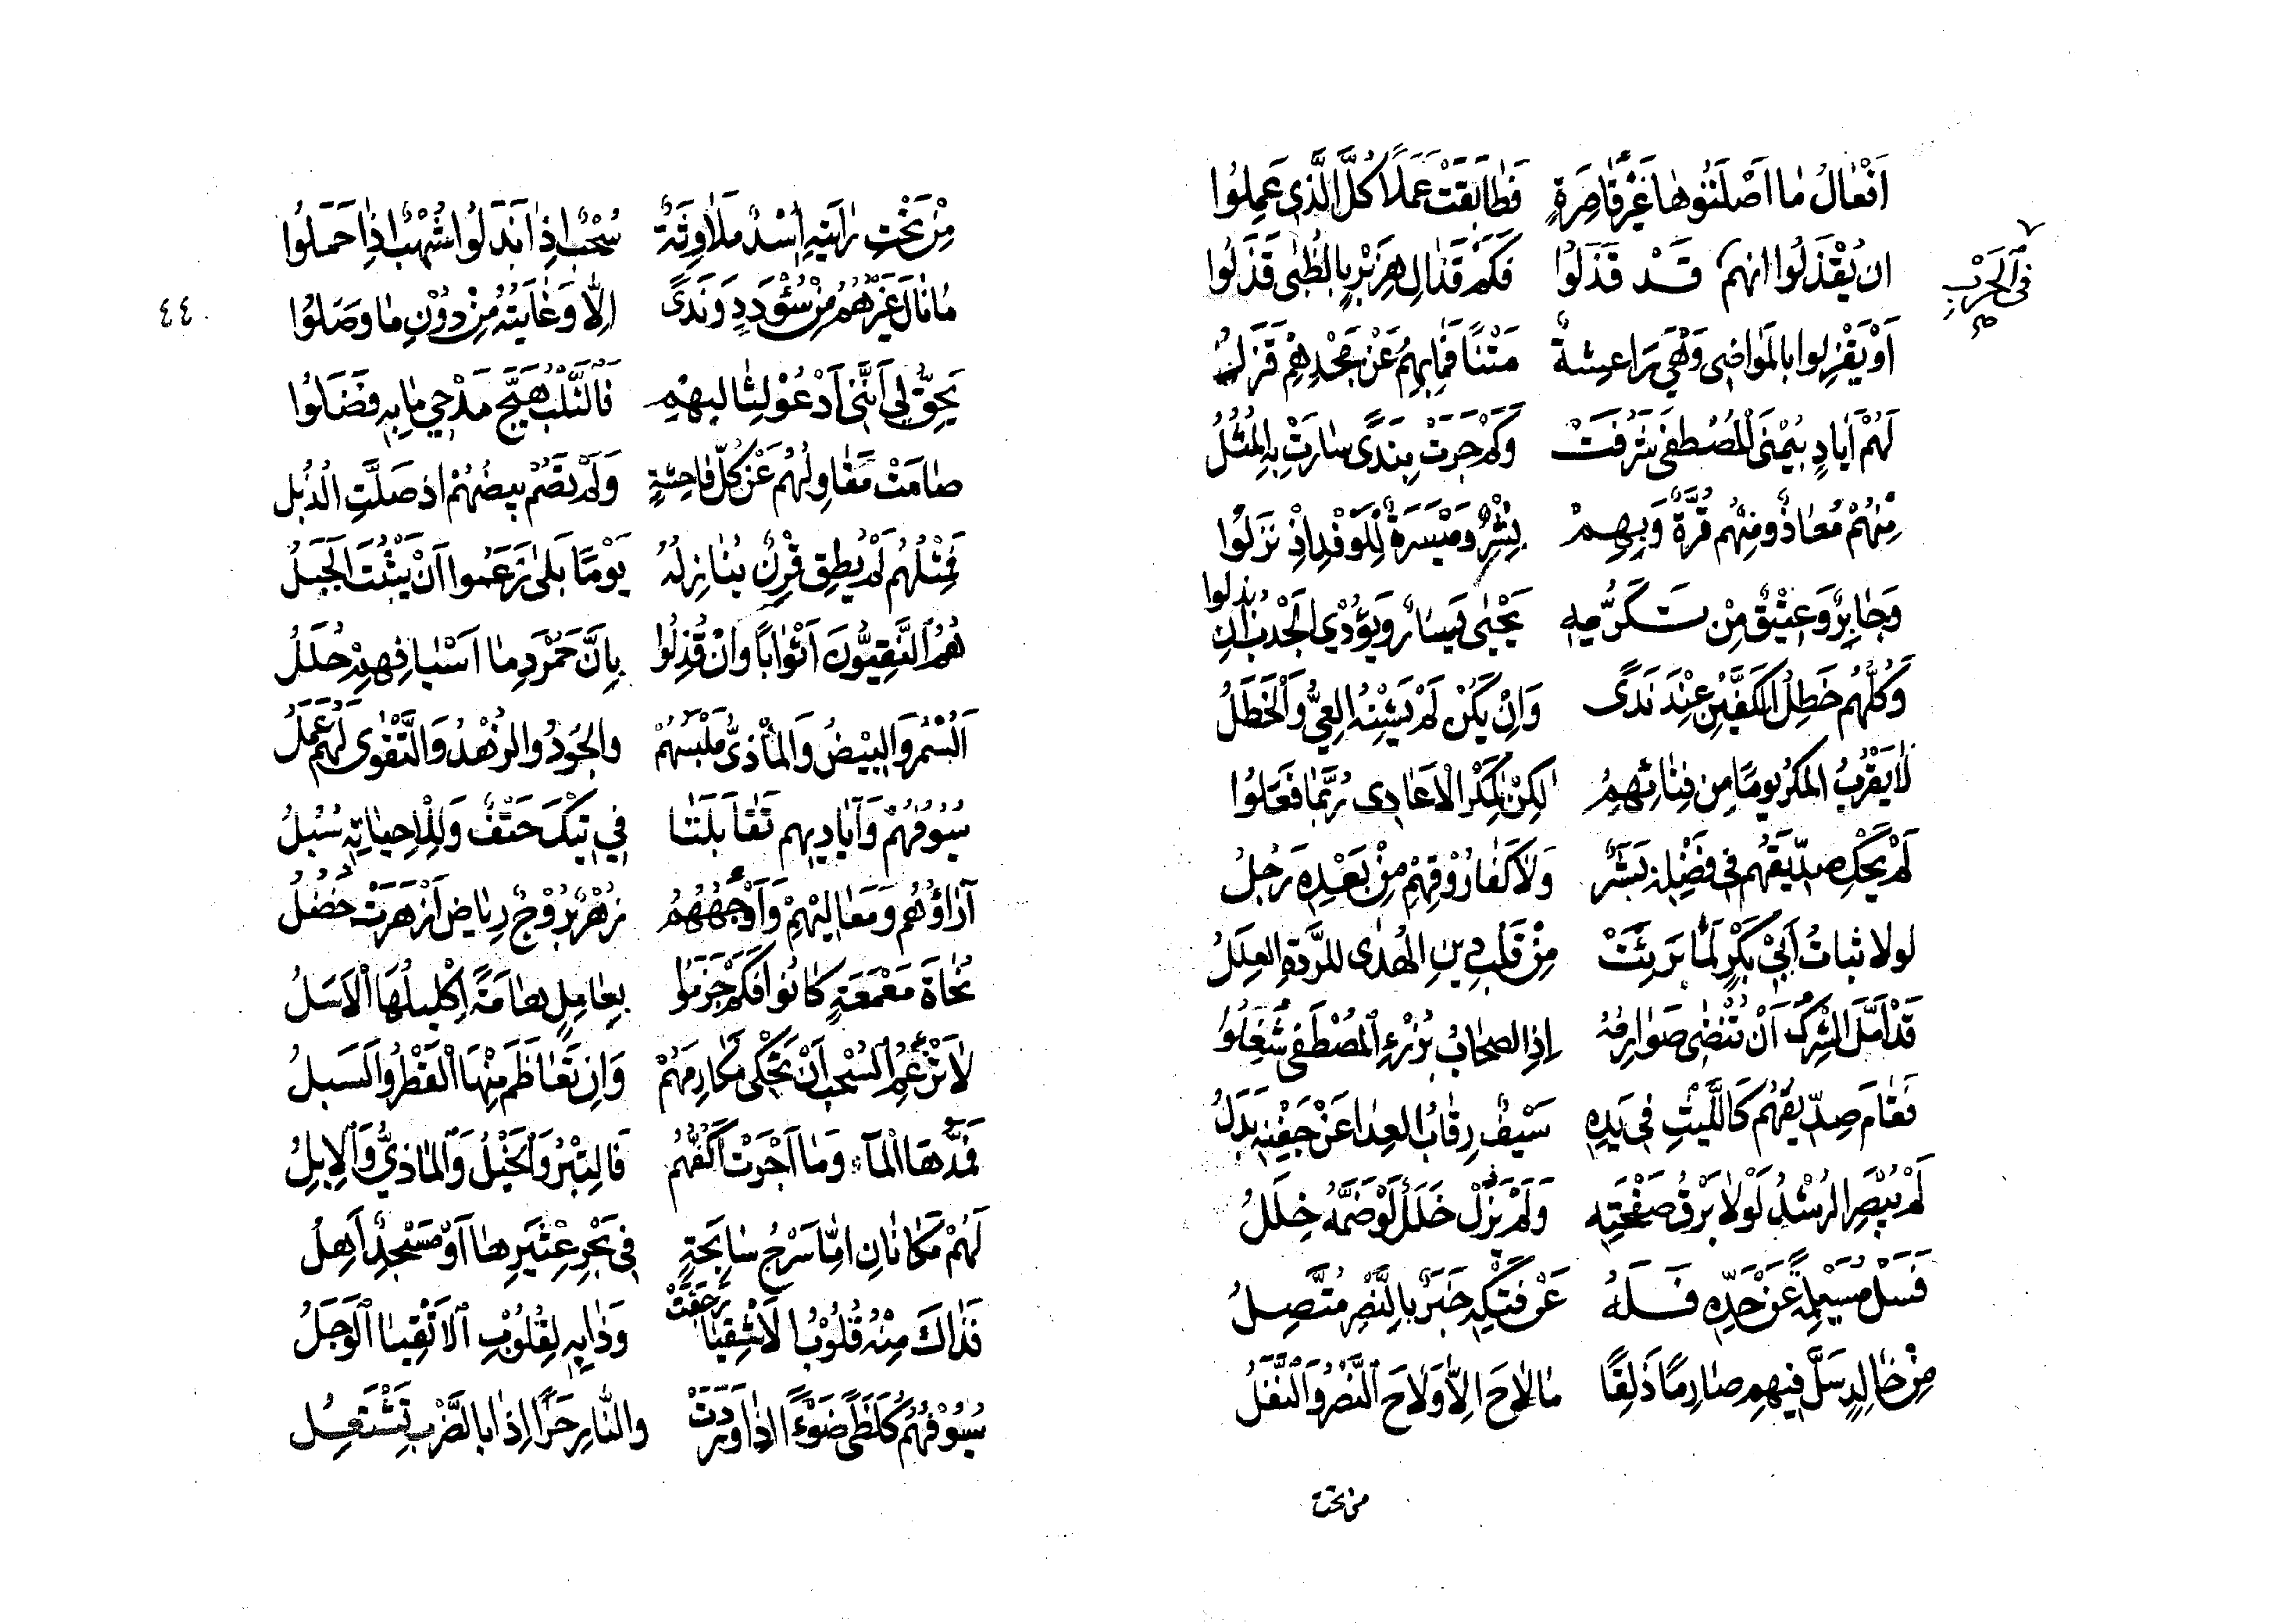 اَفْعَالُ مَا اَصْلَتُوهَا غَيْرُ قَاصِرَةٍ فَطَابَقَتْ عَمَلًا كُلَّ الَّذِي عَمِلُوا
ان يُقْذَلُوا انهم قَدْ قَذَلُوا فَكَمْ قَذَالِ هِزَبْرٍ بِالظُّبَى قَذَلُوا
فِي الْحَرْبِ صح
اَوْ يَقْزِلوا بالمَوَاضِي وَهْيَ رَاعِشَةٌ مَتْنًا فَمَا بِهِمُ عَنْ مَجْدِهِمْ قَزَلُ
لَهُمْ اَيَادٍ بِيُمْنَى الْمُصْطَفَى شَرُفَتْ وَكَمْ جَرَتْ بِنَدًى سَارَتْ بِهِ الْمُثُلُ
مِنْهُمْ مُعَاذٌ وَمِنْهُم قُرَّةٌ وَبِهِمْ بِشْرٌ وَمَيْسَرَةٌ لِلْوَفْدِ اِذْ نَزَلُوا
وَجَابِرٌ وَعَتِيقٌ مِنْ تَكَرُّمِهِ يَحْيَى يَسَارٌ وَيُؤْدِي الْجَدْبُ ان بذلوا
وَكُلُّهُم خَطِلُ الكَفَّيْنِ عِنْدَ نَدًى وَاِنْ يَكُنْ لَمْ يَشِنْهُ العِيُّ وَالْخَطَلُ
لَا يَقْرُبُ المَكْرُ يومًا مِن فِنَائِهِمُ لكِنْ بِمَكْرِ الْاَعَادِي رُبَّمَا فَعَلُوا
لَمْ يَحْكِ صِدِّيقَهُم فِي فَضْلِهِ بَشَرٌ وَلَا كَفَارُوقِهِمْ مِنْ بَعْدِهِ رَجُلُ
لولا ثباتُ اَبِي بَكْرٍ لَمَا بَرِئَتْ مِنْ قَلْبِ دِينِ الهُدَى للرِّدَّةِ العِلَلُ
قَدْ اَمَّلَ الشِّرْكُ اَنْ تُنْضَى صَوَارِمُهُ اِذِ الصِحَابُ بُرْزْءِ المُصْطَفَى شُغِلُوا
فَقَامَ صِدِّيقُهُم كَاللَّيْثِ فِي يَدِهِ سَيْفٌ رِقَابُ العِدَا عَنْ جَفْنِهِ بَدَلُ
لَمْ يُبْصَرِ الرُشْدُ لَوْلَا بَرْقُ صَفْحَتِهِ وَلَمْ يَزُلْ خَلَلٌ لَوْ ضَمَّهُ خِلَلُ
فَسَلْ مُسَيْلِمَةً عَنْ حَدِّهِ فَلَهُ عَنْ فَتْكِهِ خَبَرٌ بِالنَّصْرِ مُتَّصِلُ
مِنْ خَالِدٍ سَلَّ فِيهِمِ صَارِمًا ذَلِقًا مَا لَاحَ اِلَّا وَلَاحَ النَّصْرُ وَالنَّفَلُ
من تحت
مِنْ تَحْتِ رَايَتِهِ اُسْدٌ مَلَاوِثَةٌ سُحْبٌ اِذَا بَذَلُوا شُهْبٌ اِذَا حَمَلُوا
مَا نَالَ غَيْرُهُمُ مِنْ سُؤْدَدٍ وَنَدًى اِلَّا وَغَايَتُهُ مِنْ دُوْنِ مَا وَصَلُوا
٤٤
يَحِقُّ لِي اَنَّنِي اَدْعُو لِثَالِبِهِم فَالثَّلْبُ هَيَّجَ مَدْحِي مَا بِهِ فَضَلُوا
صَامَتْ مَقَاوِلُهُم عَنْ كُلِّ فَاحِشَةٍ وَلَمْ تَصُمْ بِيضُهُمْ اذ صَلَّتِ الذُبُل
فَمِثْلُهُم لَمْ يُطِق قِرْنٌ يُنَازِلُهُ يَوْمًا بَلَى زَعَمُوا اَنْ يَثْبُتَ الجَبَلُ
هُمُ النَّقِيُّونَ اَثْوَابًا وَاِنْ قُذِلُوا بِاَنَّ حُمْرَ دِمَا اَسْيَافِهِمْ حُلَلُ
اَلسُمْرُ وَالبِيْضُ وَالْمَاذِيُّ مَلْبَسُهُمْ والجُودُ والزُهْدُ وَالتَّقْوَى لَهُمْ عَمَلُ
سُيُوفُهُمْ وَاَيَادِيهِم تَقَابَلَتَا فِي تِيْكَ حَتْفٌ وَلِلْاِحيَاتِهِ سُبُلُ
آرَاؤُهُم وَمَعَالِيْهِمْ وَاَوْجُهُهُمُ زُهْرٌ بُرُوْجٌ رِيَاضٌ اَزْهَرَتْ خُضُلُ
نُحَاةُ مَعْمَعَةٍ كَانُوا فَكَمْ جَزَمُوا بِعَامِلٍ هَامَةً اِكْلِيلُهَا الْاَسَلُ
لَا تَزْعُمُ السُحْبُ اَنْ تَحْكِي مَكَارِمَهُمْ وَاِن تَعَاظَمَ مِنْهَا الْقَطْرُ وَالسَبَلُ
فَمَدُّهَا الْمَآءُ وَمَا اَجْرَتْ اَكُفُّهُمُ فَالتِبْرُ وَالخَيْلُ وَالمَاذِيُّ وَالاِبِلُ
لَهُمْ مَكَانَانِ اِمَّا سَرْجُ سَابِحَةٍ فِي بَحْرِ عِثْيَرِهَا اَوْ مَسْجِدٌ اَهِلُ
فَذَاكَ مِنْهُ قُلُوْبُ الْاَشْقِيَا رَجَفَتْ وَذَا بِهِ لِقُلُوْبِ الْاَتْقِيَا الوَجَلُ
سُيُوْفُهُمْ كَلَظَى ضَوْءًا اِذَا وَرَدَتْ والنَّارِ حَرًّا اِذَا بالضَّرْبِ تَشْتَعِلُ